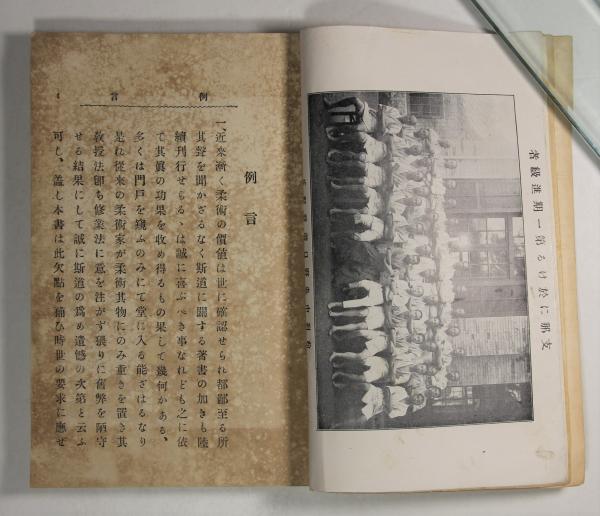 支那に於ける第一期進級者
例言
例言
一、近來漸く柔術の價値は世に確認せられ都鄙至る所
其聲を聞かざるなく斯道に關する著書の如きも陸
續刊行せらるゝは誠に喜ぶべき事なれども之に依
て其眞の功果を收め得るもの果して幾何かある、
多くは門戸を窺ふのみにて堂に入る能ざるなり
是れ從來の柔術家が柔術其物にのみ重きを置き其
敎授法卽ち修業法に意を注がず猥りに舊弊を陋守
せる結果にして誠に斯道の爲め遺憾の次第と云ふ
可し、蓋し本書は此欠點を補ひ時世の要求に應せ